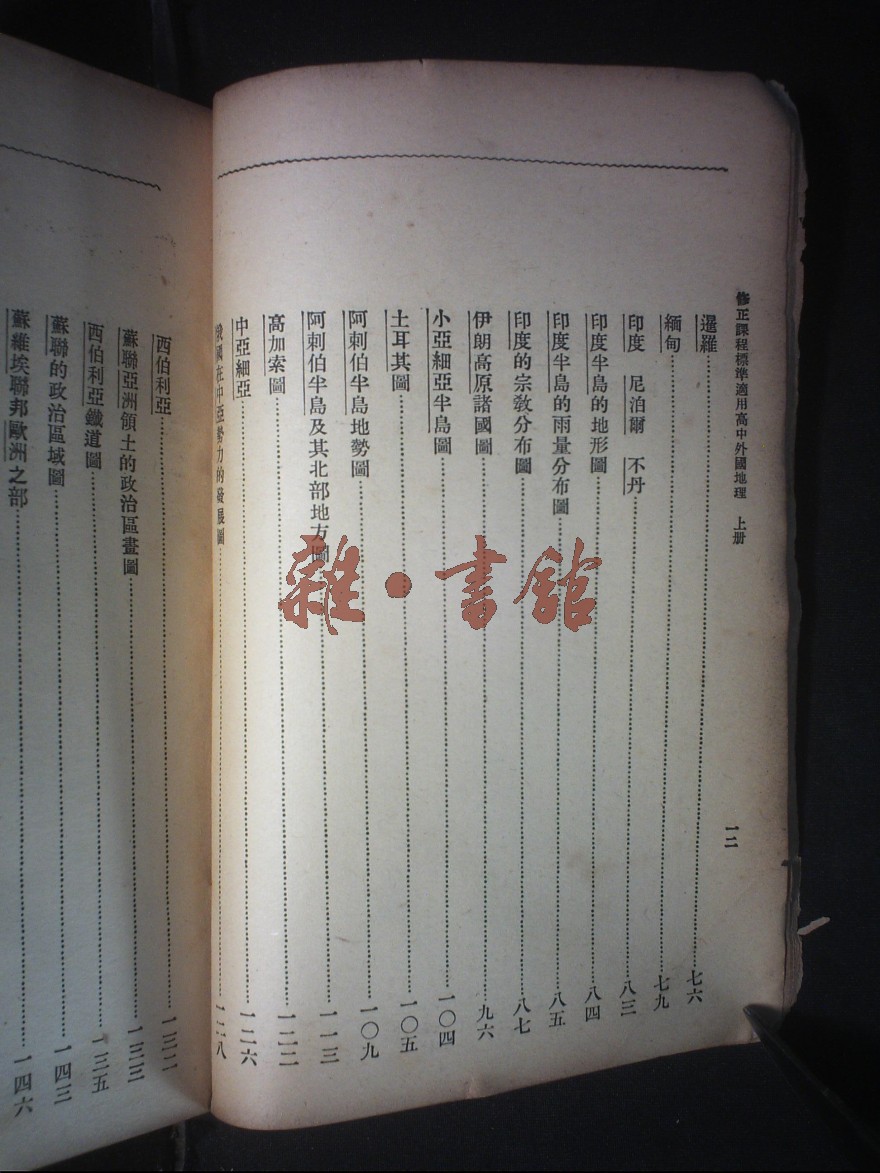 修正課程標準適用高中外國地理　上册
一二
暹羅……七六
緬甸……七九
印度　尼泊爾　不丹……八三
印度半島的地形圖……八四
印度半島的雨量分布圖……八五
印度的宗敎分布圖……八七
伊朗高原諸國圖……九六
小亞細亞半島圖……一〇四
土耳其圖……一〇五
阿剌伯半島地勢圖……一〇九
阿剌伯半島及其北部地方圖……一一三
高加索圖……一二二
中亞細亞……一二六
俄國在中亞勢力的發展圖……一二八
西伯利亞……一三二
蘇聯亞洲領土的政治區畫圖……一三三
西伯利亞鐵道圖……一三五
蘇聯的政治區域圖……一四三
蘇維埃聯邦歐洲之部……一四六
雜·書館